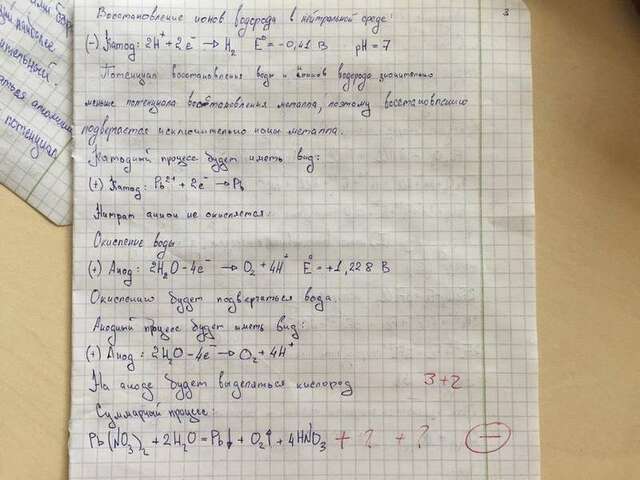 ительный.
потенциал
3
Восстановление ионов водорода в нейтральной среде:
(-) Катод: 2H⁺ + 2e⁻ → H₂ E⁰ = -0,41 В pH = 7
Потенциал восстановления воды и ионов водорода значительно
меньше потенциала восстановления металла, поэтому восстановлению
подвергаются исключительно ионы металла.
Катодный процесс будет иметь вид:
(+) Катод: Pb²⁺ + 2e⁻ → Pb
Нитрат анион не окисляется.
Окисление воды:
(+) Анод: 2H₂O - 4e⁻ → O₂ + 4H⁺ E⁰ = +1,228 В
Окислению будет подвергаться вода.
Анодный процесс будет иметь вид:
(+) Анод: 2H₂O - 4e⁻ → O₂ + 4H⁺
На аноде будет выделяться кислород 3+2
Суммарный процесс:
Pb(NO₃)₂ + 2H₂O = Pb↓ + O₂↑ + 4HNO₃ + ? + ? −